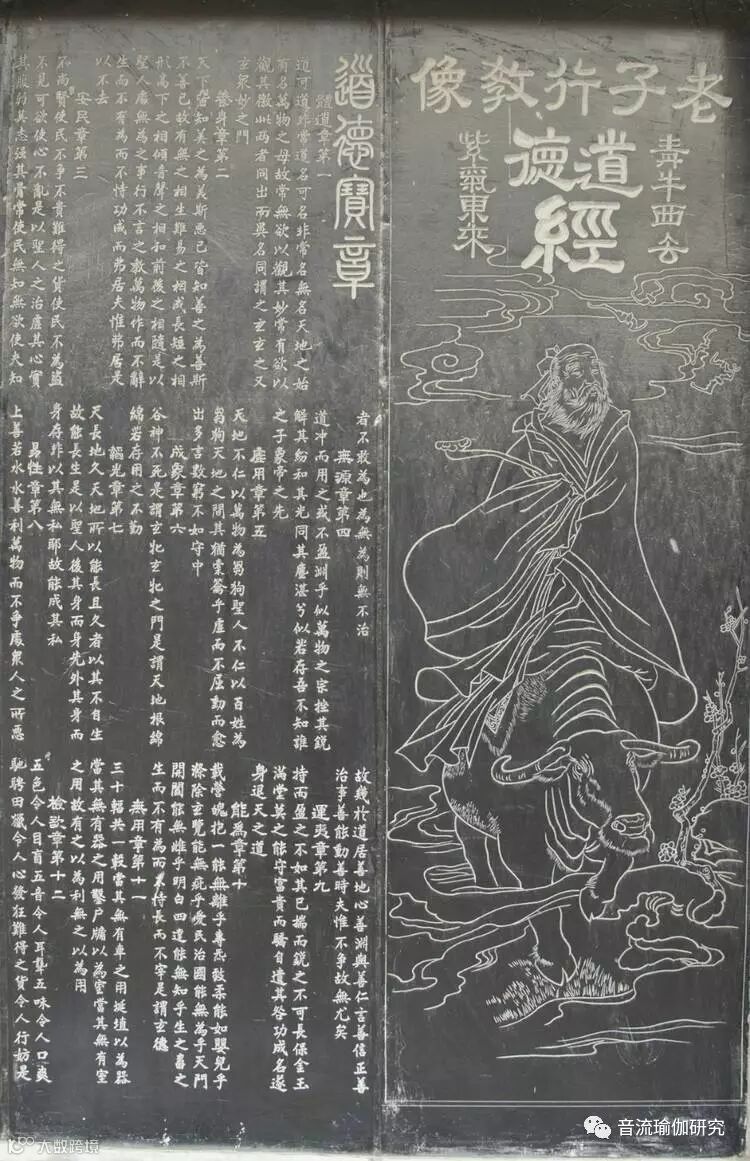 老子行教像
青牛西去
道德經
紫氣東來
道德寶章
體道章第一
道可道非常道名可名非常名無名天地之始
有名萬物之母故常無欲以觀其妙常有欲以
觀其徼此兩者同出而異名同謂之玄玄之又
玄眾妙之門
養身章第二
天下皆知美之為美斯惡已皆知善之為善斯
不善已故有無之相生難易之相成長短之相
形高下之相傾音聲之相和前後之相隨是以
聖人處無為之事行不言之教萬物作而不辭
生而不有為而不恃功成而弗居夫惟弗居是
以不去
安民章第三
不尚賢使民不爭不貴難得之貨使民不為盜
不見可欲使心不亂是以聖人之治虛其心實
其腹弱其志強其骨常使民無知無欲使夫知
者不敢為也為無為則無不治
無源章第四
道沖而用之或不盈淵乎似萬物之宗挫其銳
解其紛和其光同其塵湛兮似若存吾不知誰
之子象帝之先
虛用章第五
天地不仁以萬物為芻狗聖人不仁以百姓為
芻狗天地之間其猶橐籥乎虛而不屈動而愈
出多言數窮不如守中
成象章第六
谷神不死是謂玄牝玄牝之門是謂天地根綿
綿若存用之不勤
韜光章第七
天長地久天地所以能長且久者以其不自生
故能長生是以聖人後其身而身先外其身而
身存非以其無私耶故能成其私
易性章第八
上善若水水善利萬物而不爭處眾人之所惡
故幾於道居善地心善淵與善仁言善信正善
治事善能動善時夫惟不爭故無尤矣
運夷章第九
持而盈之不如其已揣而銳之不可長保金玉
滿堂莫之能守富貴而驕自遺其咎功成名遂
身退天之道
能為章第十
載營魄抱一能無離乎專炁致柔能如嬰兒乎
滌除玄覽能無疵乎愛民治國能無為乎天門
開闔能無雌乎明白四達能無知乎生之畜之
生而不有為而不恃長而不宰是謂玄德
無用章第十一
三十輻共一轂當其無有車之用埏埴以為器
當其無有器之用鑿戶牖以為室當其無有室
之用故有之以為利無之以為用
檢欲章第十二
五色令人目盲五音令人耳聾五味令人口爽
馳騁田獵令人心發狂難得之貨令人行妨是
大數跨境
音流瑜伽研究